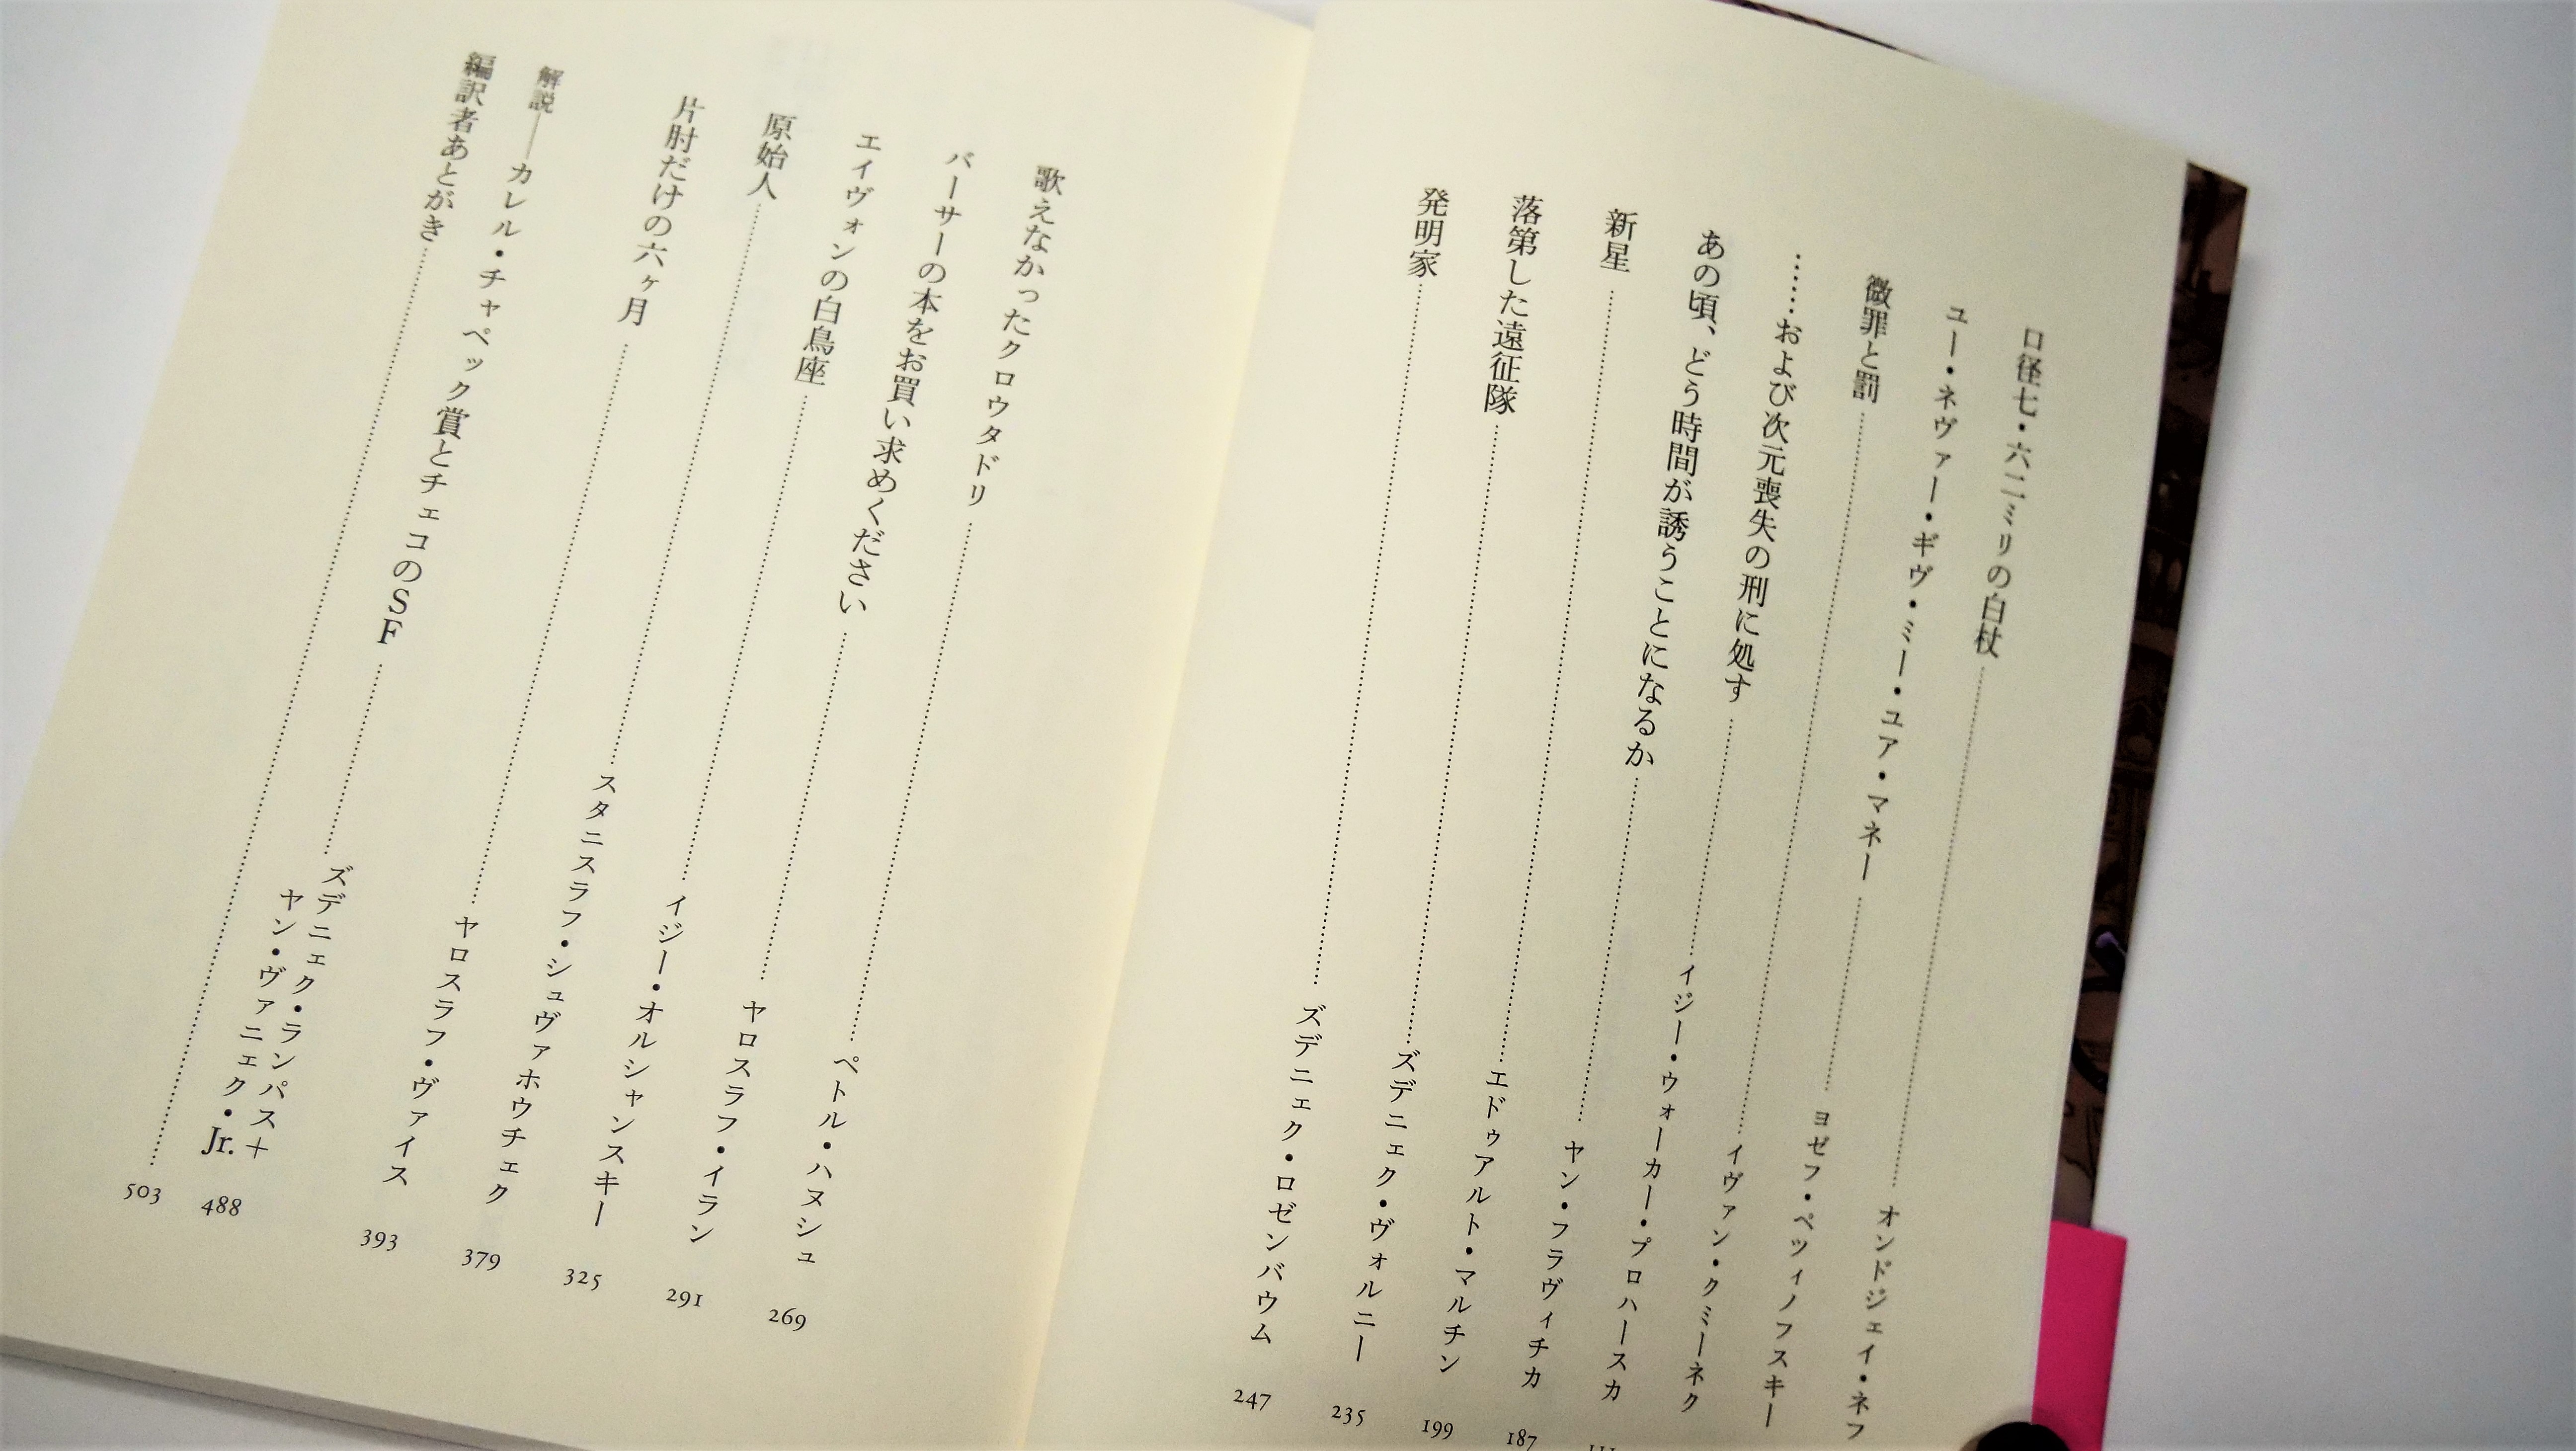 口径七・六二ミリの白杖………オンドジェイ・ネフ
ユー・ネヴァー・ギヴ・ミー・ユア・マネー………ヨゼフ・ペツィノフスキー
微罪と罰………イヴァン・クミーネク
……および次元喪失の刑に処す………イジー・ウォーカー・プロハースカ
あの頃、どう時間が誘うことになるか………ヤン・フラヴィチカ 187
新星………エドゥアルト・マルチン 199
落第した遠征隊………ズデニェク・ヴォルニー 235
発明家………ズデニェク・ロゼンバウム 247
歌えなかったクロウタドリ………ペトル・ハヌシュ 269
バーサーの本をお買い求めください………ヤロスラフ・イラン 291
エイヴォンの白鳥座………イジー・オルシャンスキー 325
原始人………スタニスラフ・シュヴァホウチェク 379
片肘だけの六ヶ月………ヤロスラフ・ヴァイス 393
解説——カレル・チャペック賞とチェコのSF………ズデニェク・ランパス+
ヤン・ヴァニェク・Jr. 488
編訳者あとがき………503